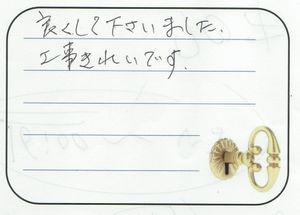 良くして下さいました.
工事きれいです.